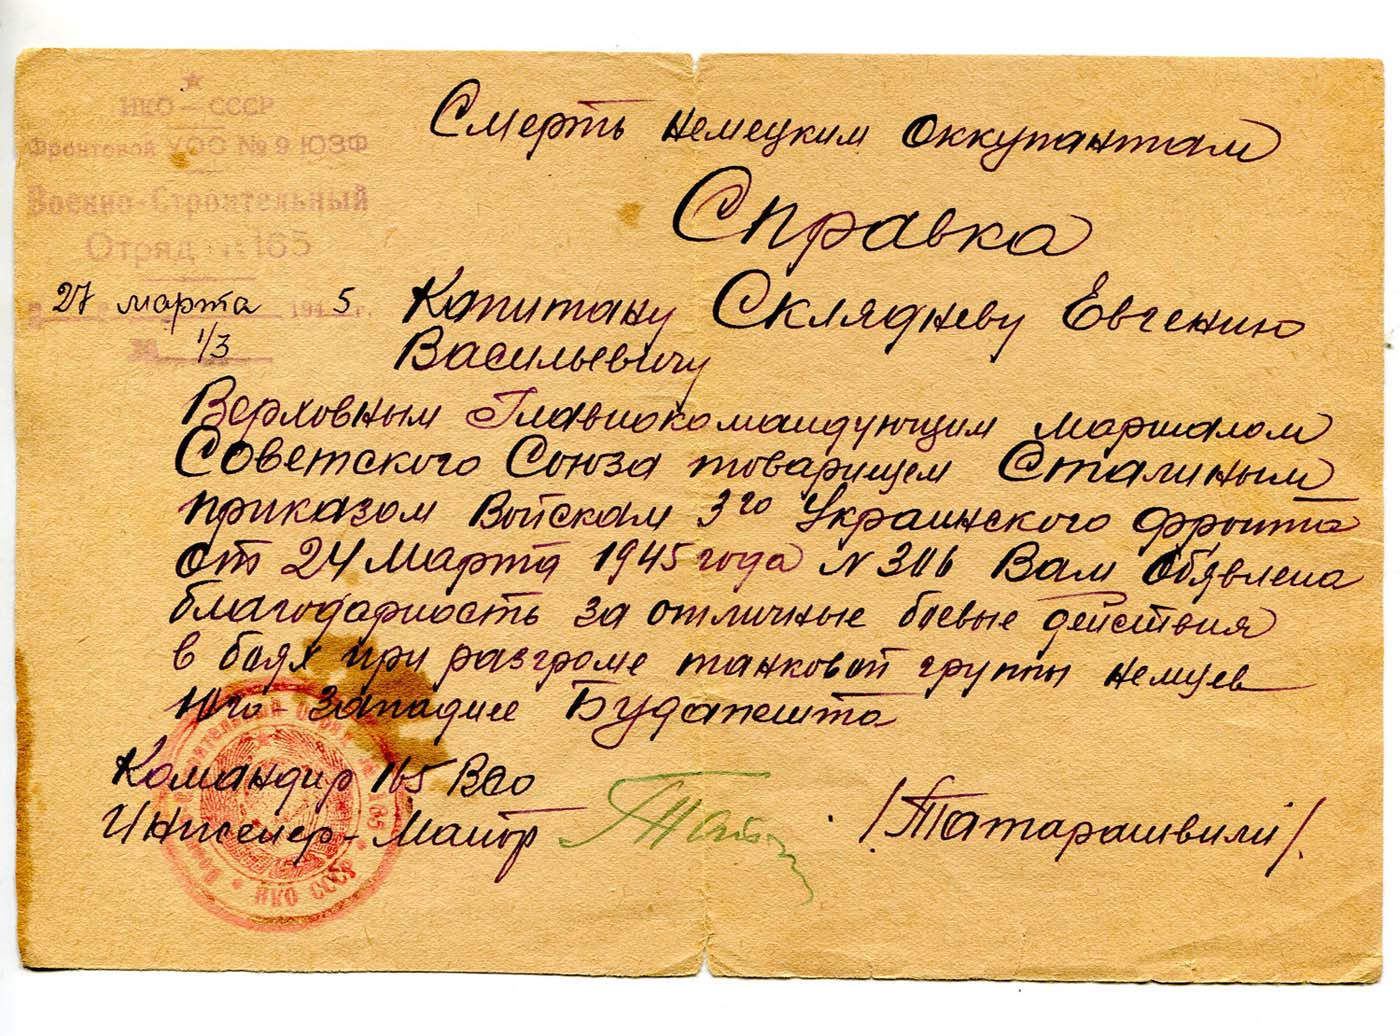 НКО — СССР
Фронтовой УОС № 9 ЮЗФ
Военно-Строительный
Отряд № 165
27 марта 1945 г.
№ 1/3
Смерть немецким оккупантам
Справка
Капитану Складневу Евгению
Васильевичу
Верховным Главнокомандующим маршалом
Советского Союза товарищем Сталиным
приказом Войскам 3го Украинского фронта
от 24 Марта 1945 года N 306 Вам Объявлена
благодарность за отличные боевые действия
в боях при разгроме танковой группы немцев
Юго-Западнее Будапешта
Командир 165 ВСО
Инженер-Майор /Татарашвили/.
НКО СССР